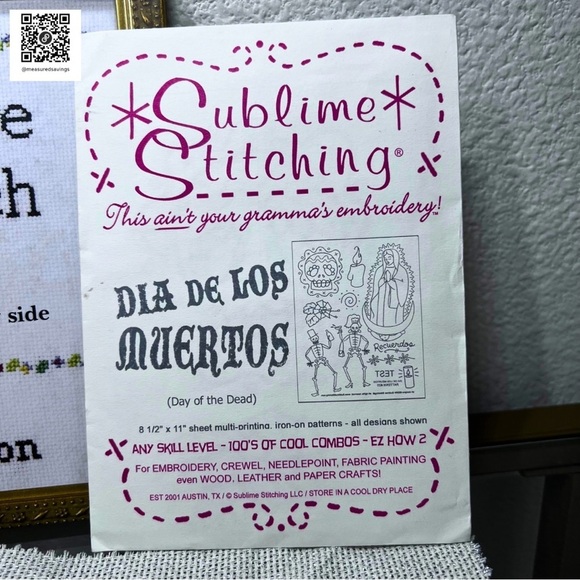 @measuredsavings
e
th
side
on
Sublime
Stitching®
This ain't your gramma's embroidery!™
DIA DE LOS
MUERTOS
(Day of the Dead)
Recuerdos
TEST
8 1/2" x 11" sheet multi-printing, iron-on patterns - all designs shown
ANY SKILL LEVEL - 100'S OF COOL COMBOS - EZ HOW 2
For EMBROIDERY, CREWEL, NEEDLEPOINT, FABRIC PAINTING
even WOOD, LEATHER and PAPER CRAFTS!
EST 2001 AUSTIN, TX / © Sublime Stitching LLC / STORE IN A COOL DRY PLACE